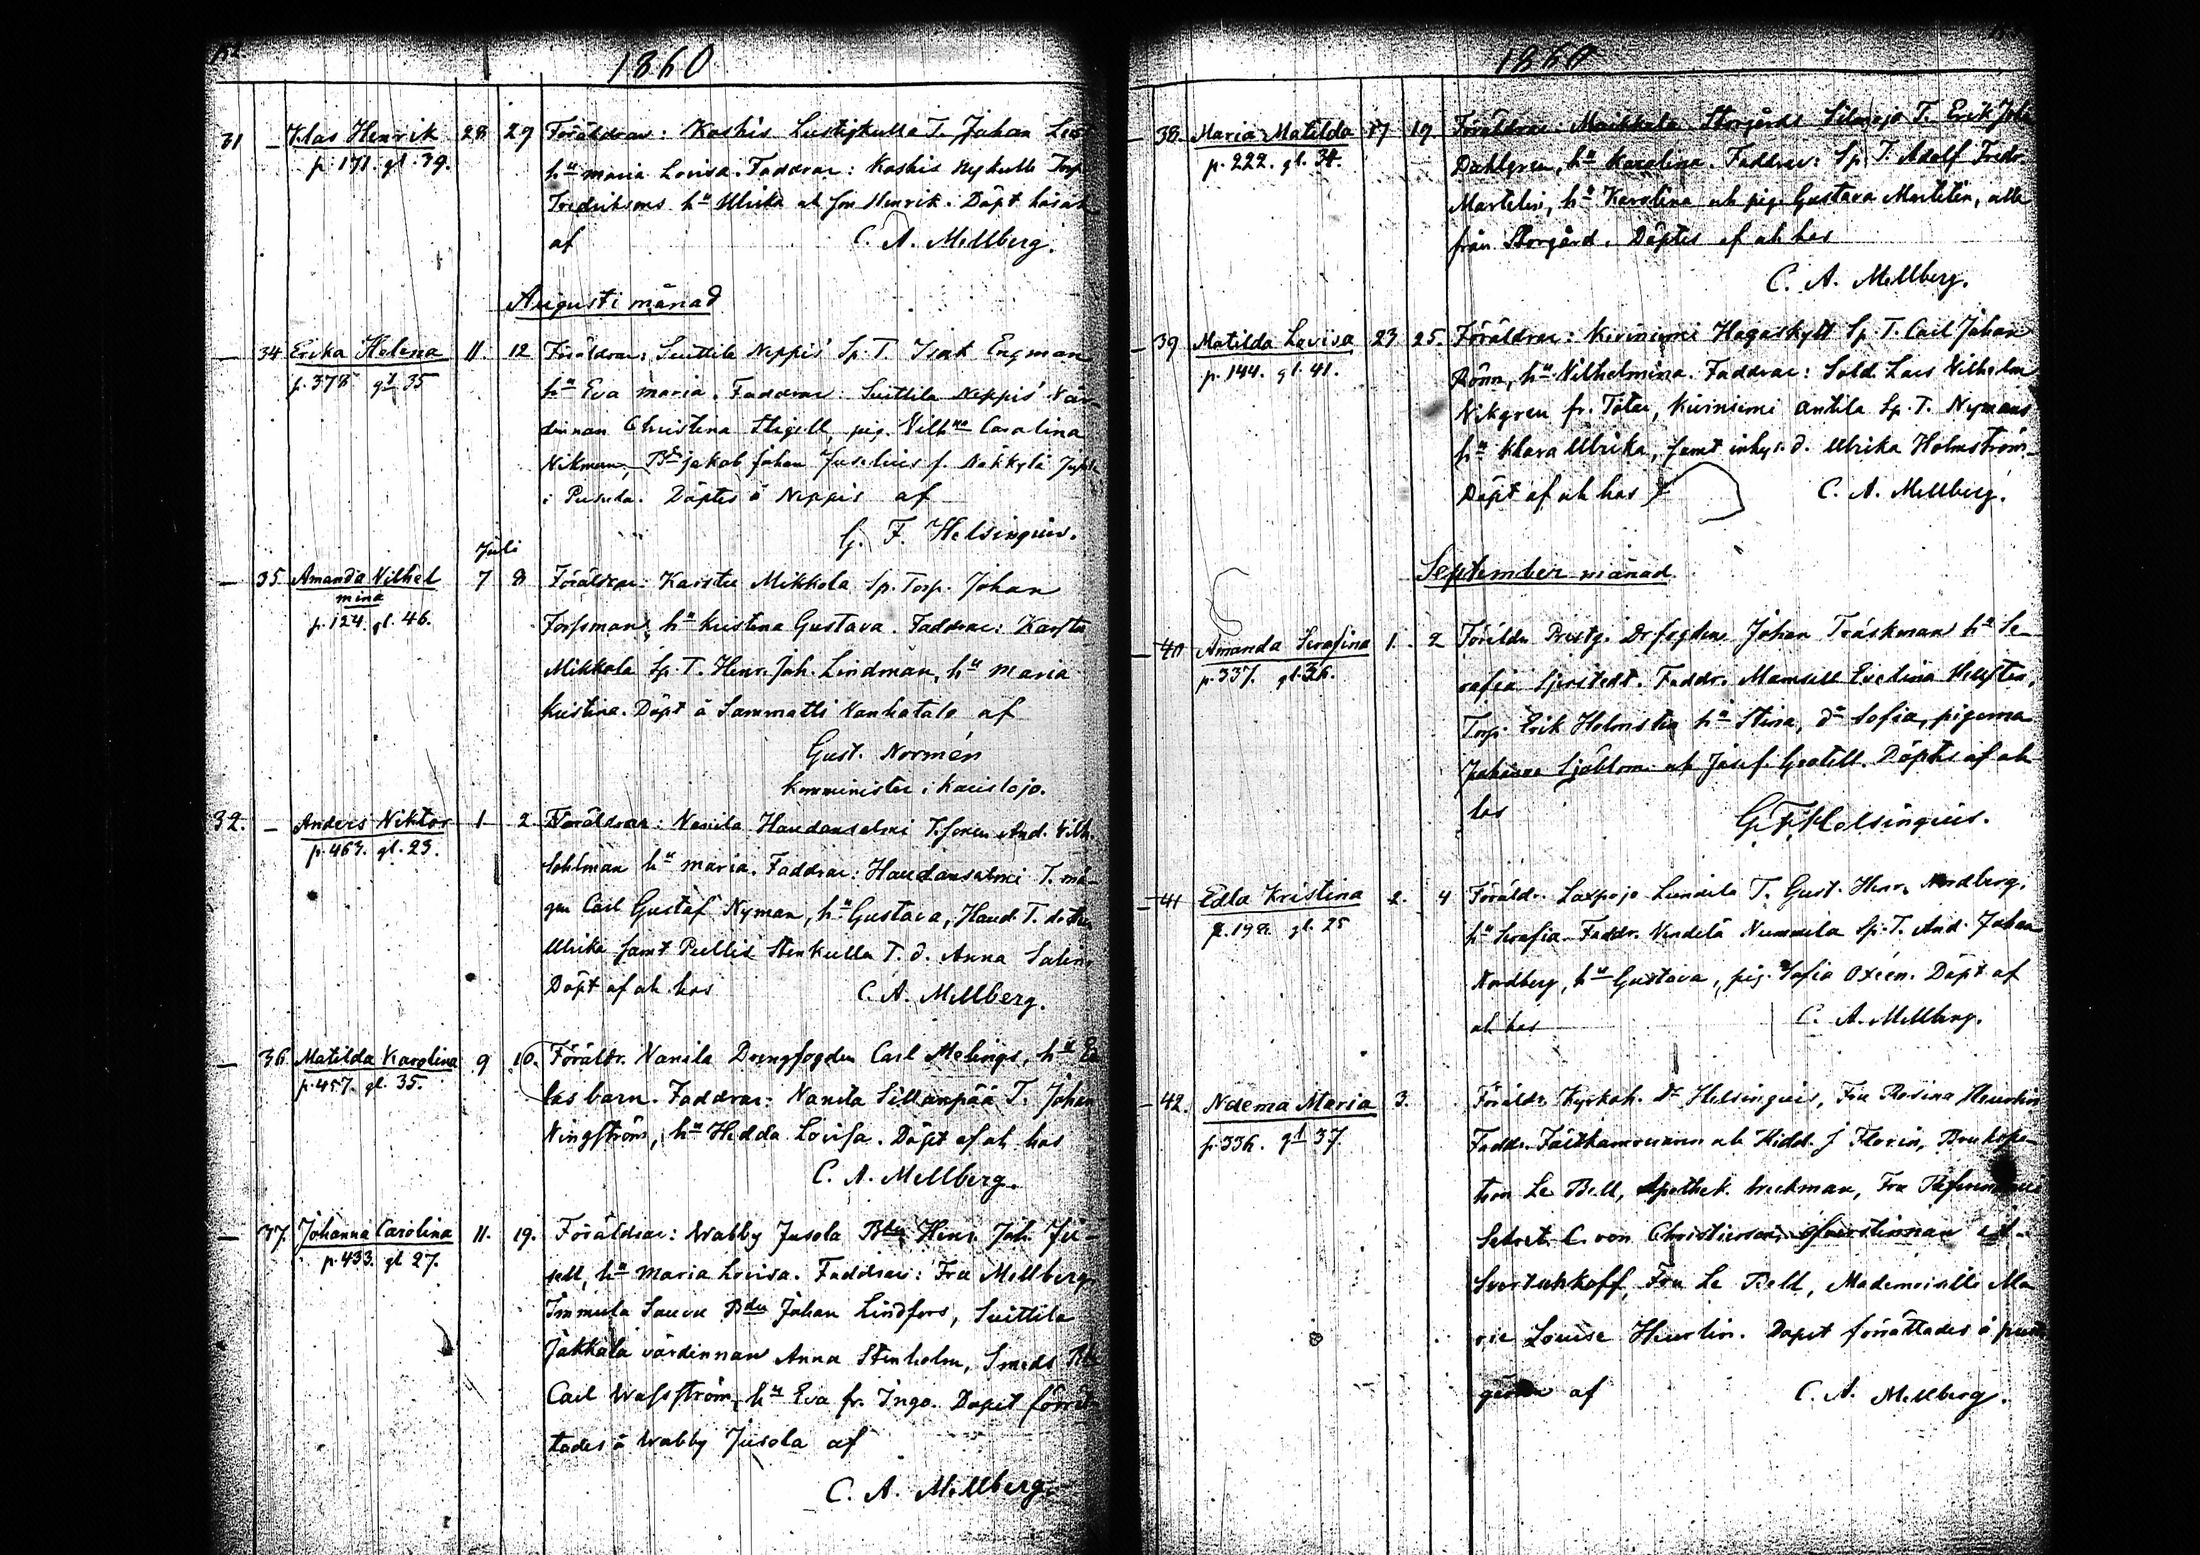 1860
31 — Klas Henrik 28 29 Föräldrar: Koskis Lustigkulla T. Johan
p. 171. gl. 39. hu Maria Lovisa. Faddrar: Koskis Nykulla Torp.
Fredriksons hu Ulrika ah son Henrik. Döpt härst.
af C. A. Mellberg.
Augusti månad
— 34 Erika Helena 11. 12 Föräldrar: Suittila Neppis Sp. T. Isak Engman
p. 378 gl. 35 hu Eva Maria. Faddrar: Suittila Neppis Vär-
dinnan Christina Stigell, pig. Vilhna Carolina
Vikman, Bd Jakob Johan Juselius f.
i Pusula. Döptes å Neppis af
G. F. Helsinguis.
Juli
— 35. Amanda Vilhel 7 8 Föräldrar: Karstu Mikkola Sp. Torp. Johan
mina
p. 124. gl. 46. Forssman, hu Kristina Gustava. Faddrar: Karstu
Mikkola Sp. T. Henr. Joh. Lindman, hu Maria
Kristina. Döpt å Sammatti Vanhatalo af
Gust. Normén
Komminister i Karislojo.
32. — Anders Viktor 1 2 Föräldrar: Vanila Haudansalmi T. sonen And. Vilh.
p. 463. gl. 23. Sohlman hu Maria. Faddrar: Haudansalmi T. må-
gen Carl Gustaf Nyman, hu Gustava, Haud. T. dotter
Ulrika samt Pullis Stenkulla T. d. Anna
Döpt af ah has C. A. Mellberg.
— 36 Matilda Karolina 9 10. Föräldr. Vanila Drengfogden Carl Melings, hu
p. 457. gl. 35. las barn. Faddrar: Vanila Sillanpää T. Johan
Vingström, hu Hedda Lovisa. Döpt af ah has
C. A. Mellberg.
— 37. Johanna Carolina 11. 19. Föräldrar: Wabby Jusola Bdn Henr. Joh.
p. 433. gl 27. sell, hu Maria Lovisa. Faddrar: Fru Mellberg,
Immula Bdn Johan Lindfors, Suittila
Jakkala värdinnan Anna Stenholm, Smeds Bdn
Carl Wassström, hu Eva fr. Ingo. Dopet förrät-
tades å Wabby Jusola af
C. A. Mellberg.
1860
— 38. Maria Matilda 17 19 Föräldrar: Maikkala Storgårds T. Erik Joh.
p. 222. gl. 34. Dahlgren, hu Karolina. Faddrar: Sp. T. Adolf Fredr.
Martelin, hu Karolina ah pig. Gustava Martelin, alla
från Storgård. Döptes af ah has
C. A. Mellberg.
— 39 Matilda Lovisa 23 25. Föräldrar: Kirvniemi Hagaskytt Sp. T. Carl Johan
p. 144. gl. 41. Rönn, hu Vilhelmina. Faddrar: Sold. Lars Vilhelm
Vikgren fr. Totar, Kirvniemi Antila Sp. T. Nymans
hu Klara Ulrika, samt inhys. d. Ulrika Holmström.
Döpt af ah has C. A. Mellberg.
September månad
— 40 Amanda Serafina 1. 2 Föräldr. Prestg. Drfogden Johan Träskman hu Se-
p. 337. gl. 36. rafia Sjerstedt. Faddr. Mamsell Evelina Hellsten,
Torp. Erik Holmsten hu Stina, dr Sofia, pigorna
Johanna Sjöblom ah Josef. Grotell. Döptes af ah
has G. F. Helsinguis.
— 41 Edla Kristina 2. 4 Föräldr. Laxpojo Lundila T. Gust. Henr. Nordberg,
p. 198. gl. 25 hu Serafia. Faddr. Vendelä Nummela Sp. T. And. Johan
Nordberg, hu Gustava, pig. Sofia Oxéen. Döpt af
ah has C. A. Mellberg.
— 42. Naema Maria 3. Föräldr. Kyrkoh. Dr Helsinguis, Fru Rosina Heurlin
p. 336. gl 37. Faddr. ah Ridd. J Florin, Brukspa-
tron Le Bell, Apothek. Fru
Sekret. C. von Christierson,
Fru Le Bell, Mademoiselle Ma
rie Louise Heurlin. Dopet förrättades å prest
gården af C. A. Mellberg.